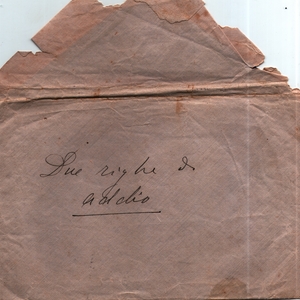 Due righe di
addio